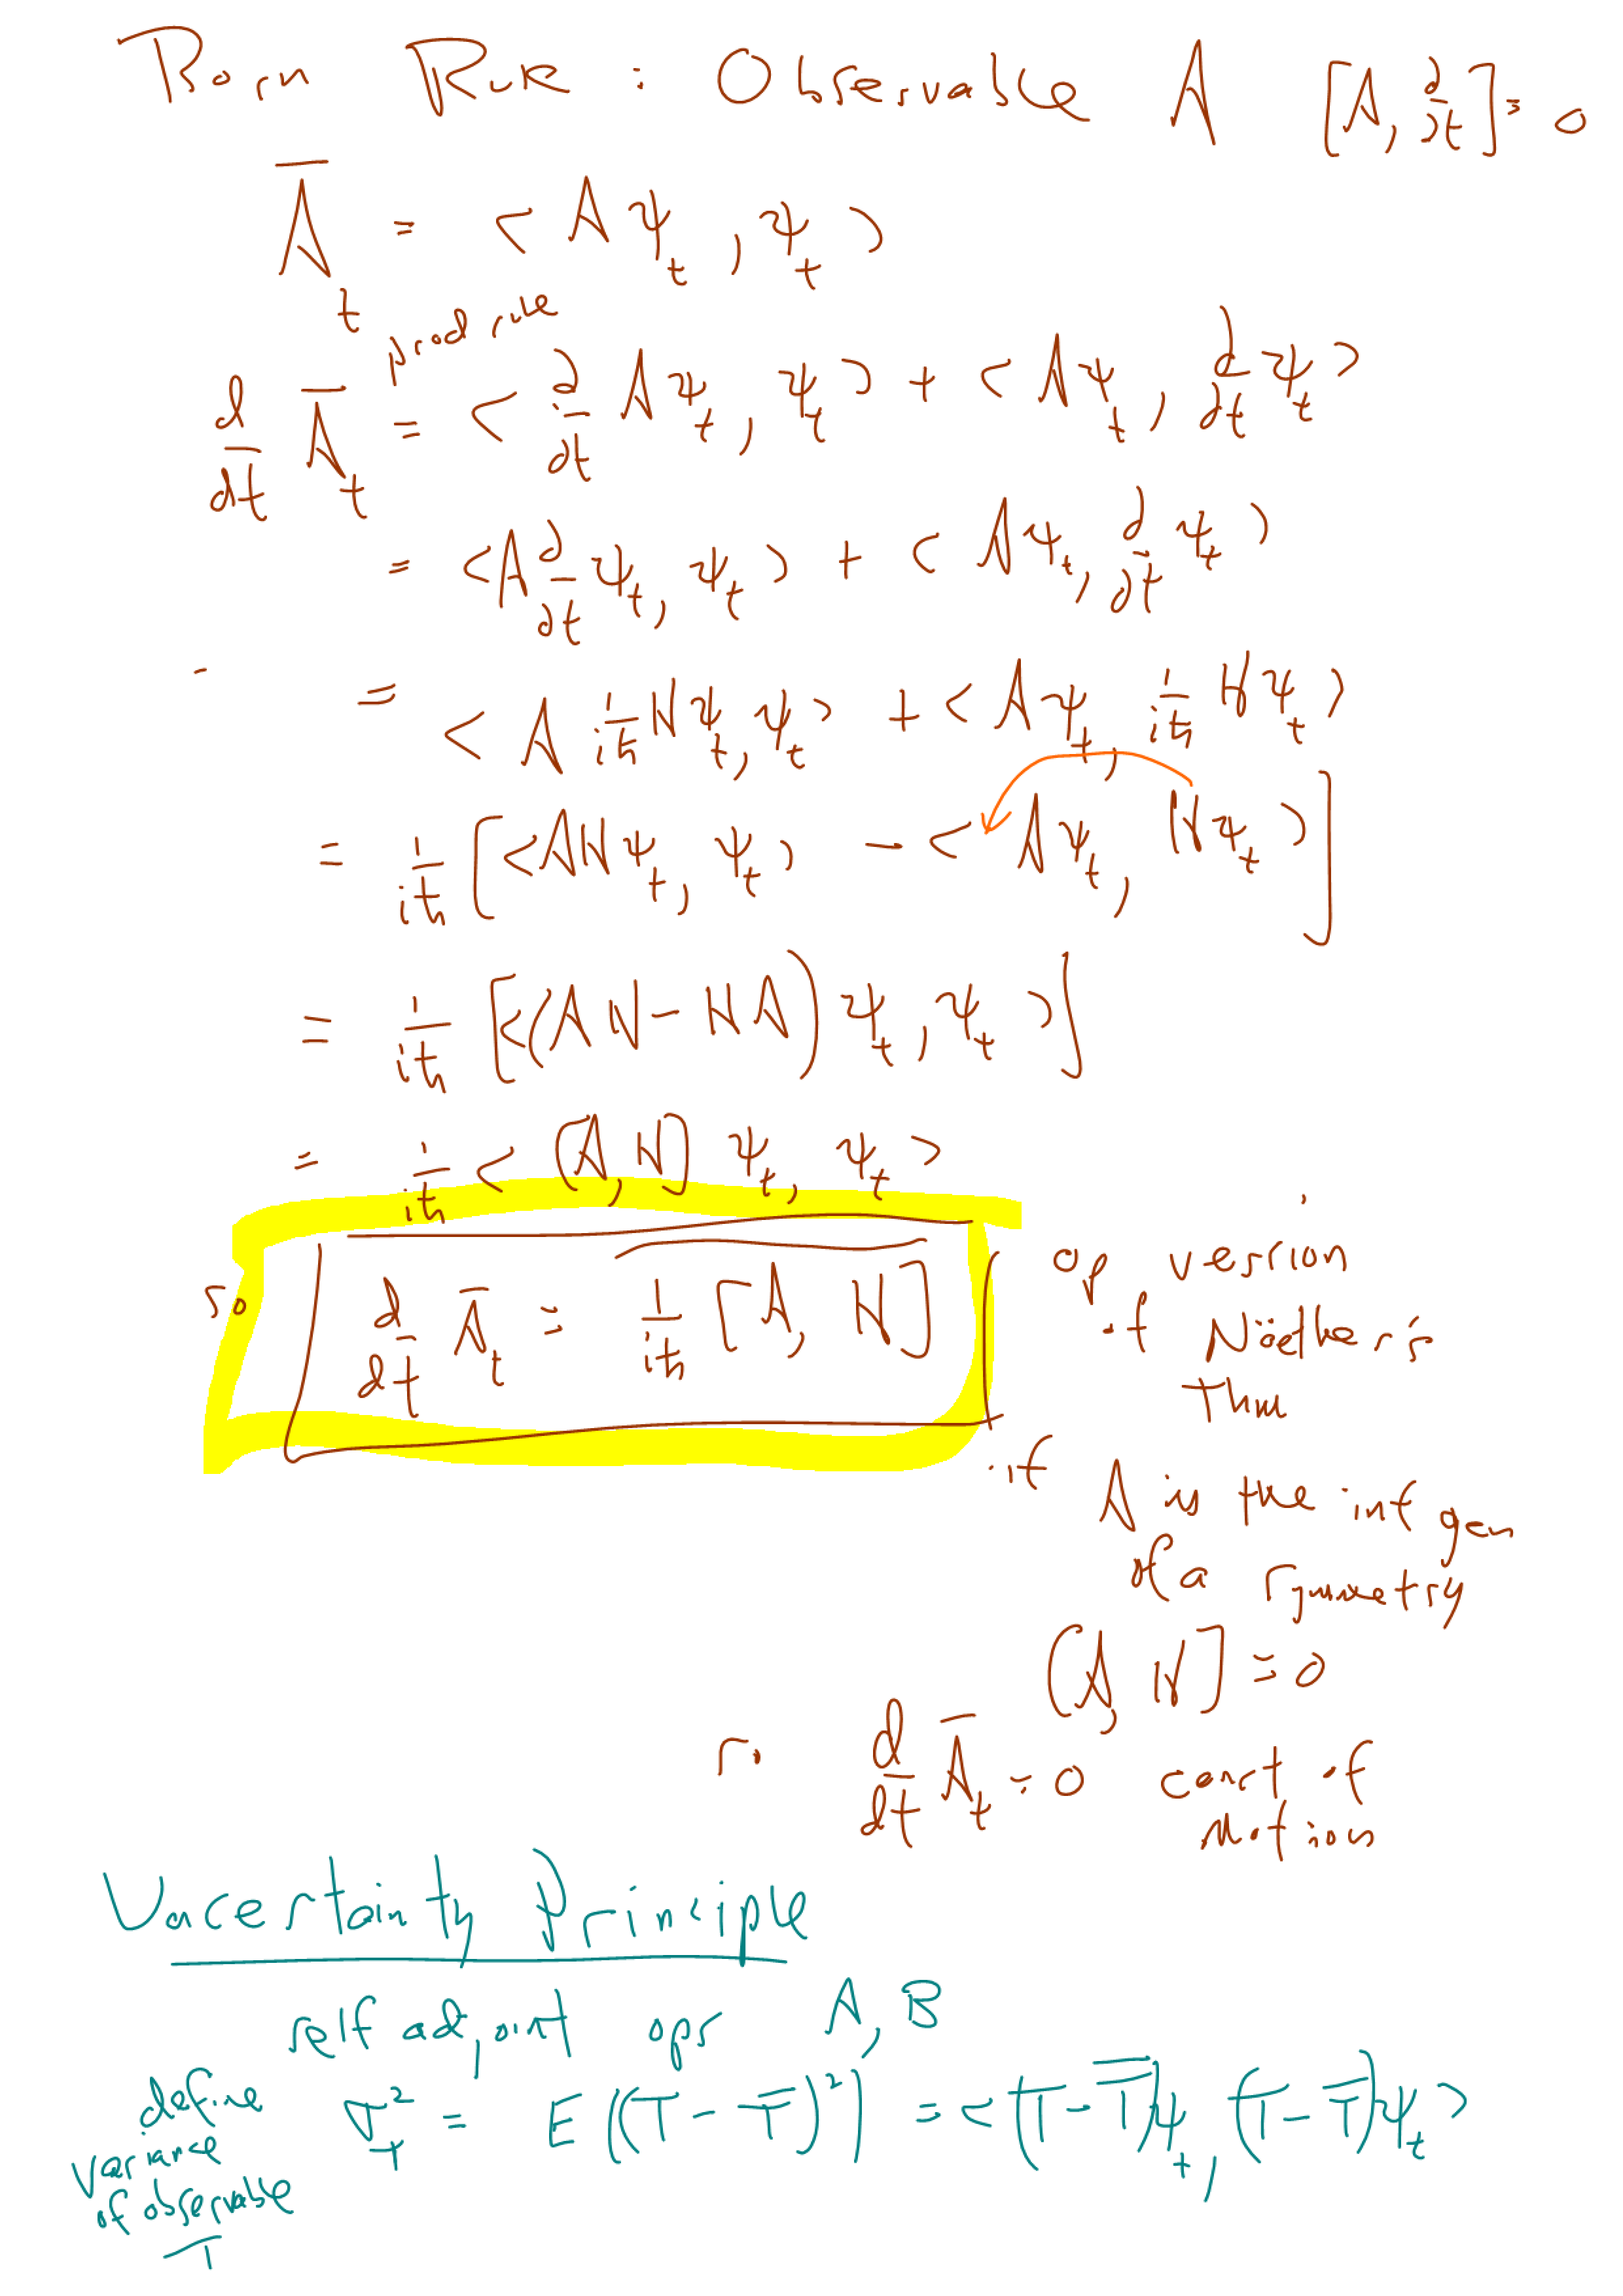 Born Rule : Observable A [A, ∂/∂t] = 0
Ā_t = <Aψ_t, ψ_t>
prod rule
d/dt Ā_t = <∂/∂t Aψ_t, ψ_t> + <Aψ_t, ∂/∂t ψ_t>
= <A ∂/∂t ψ_t, ψ_t> + <Aψ_t, ∂/∂t ψ_t>
= <A 1/iħ Hψ_t, ψ_t> + <Aψ_t, 1/iħ Hψ_t>
= 1/iħ [<AHψ_t, ψ_t> - <Aψ_t, Hψ_t>]
= 1/iħ [<(AH-HA)ψ_t, ψ_t>]
= 1/iħ <[A, H]ψ_t, ψ_t>
so d/dt Ā_t = \overline{1/iħ [A, H]}
op version
of Nöether's
Thm
if
A is the inf gen
of a symmetry
[A, H] = 0
so d/dt Ā_t = 0 const of
motion
Uncertainty Principle
self adjoint ops A, B
define
variance
of observable
T
σ²_T = E((T - T̄)²) = <(T - T̄)ψ_t, (T - T̄)ψ_t>